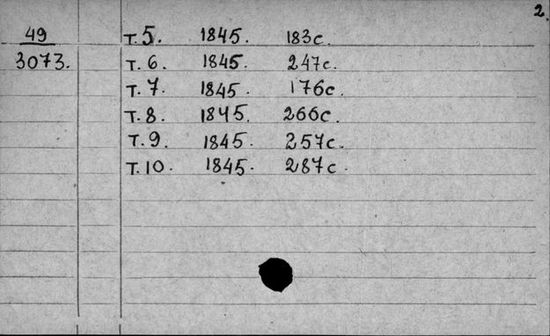 2.
49
3073.
т. 5. 1845. 183с.
т. 6. 1845. 247с.
т. 7. 1845. 176с.
т. 8. 1845. 266с.
т. 9. 1845. 257с.
т. 10. 1845. 287с.